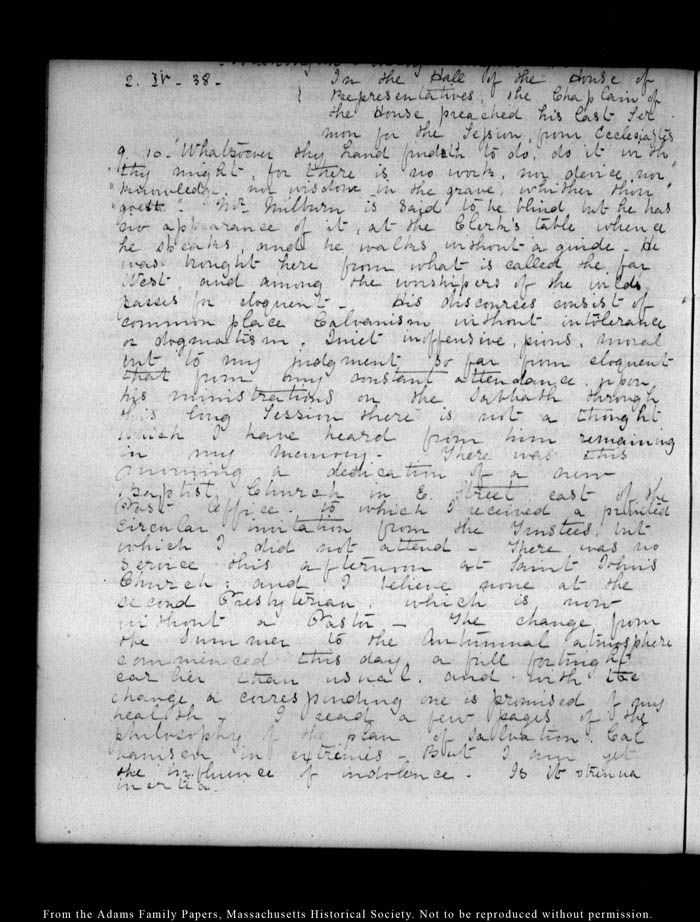 2. IV. 38.
In the Hall of the House of
Representatives, the Chaplain of
the House, preached his last Ser
mon for the Session, from Ecclesiastes
9. 10. "Whatsoever thy hand findeth to do, do it with
"thy might, for there is no work, nor device, nor
"knowledge, nor wisdom in the grave, whither thou
"goest." Mr. Milburn is said to be blind but he has
no appearance of it, at the Clerk's table whence
he speaks, and he walks without a guide - He
was brought here from what is called the far
West, and among the worshipers of the wilds,
passes for eloquent - His discourses consist of
common place Calvanism without intolerance
or dogmatism. Quiet inoffensive, pious, moral
but to my judgment so far from eloquent
that from my constant attendance upon
his ministrations on the Sabbath through
this long Session there is not a thought
which I have heard from him remaining
in my memory - There was this
morning a dedication of a new
Baptist Church in E. Street east of the
Post Office. to which I received a printed
circular invitation from the Trustees, but
which I did not attend - There was no
service this afternoon at Saint John's
Church; and I believe none at the
second Presbyterian, which is now
without a Pastor - The change from
the Summer to the Autumnal atmosphere
commenced this day, a full fortnight
earlier than usual, and with the
change a corresponding one is promised of my
health - I read a few pages of the
philosophy of the plan of Salvation. Cal
vanism in extremis - But I am yet
the influence of indolence - Is it strenua
inertia.
From the Adams Family Papers, Massachusetts Historical Society. Not to be reproduced without permission.